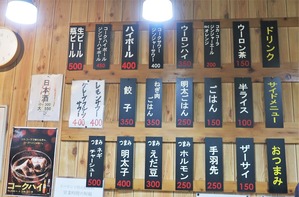 ドリンク
ウーロン茶
150
コカ・コーラ
ジンジャーエール
オレンジ
200
ウーロンハイ
400
コークサワー
ジンジャーサワー
400
ハイボール
400
コークハイボール
ジンジャーハイボール
450
生ビール
瓶ビール
500
サイドメニュー
半ライス
100
ごはん
150
明太ごはん
ねぎ肉
ごはん
350
餃子
350
レモンサワー
400
400
日本酒
おつまみ
ザーサイ
150
手羽先
250
つまみ
ホルモン
250
つまみ
えだ豆
300
つまみ
明太子
350
つまみ
ネギ
チャーシュー
500
コークハイ